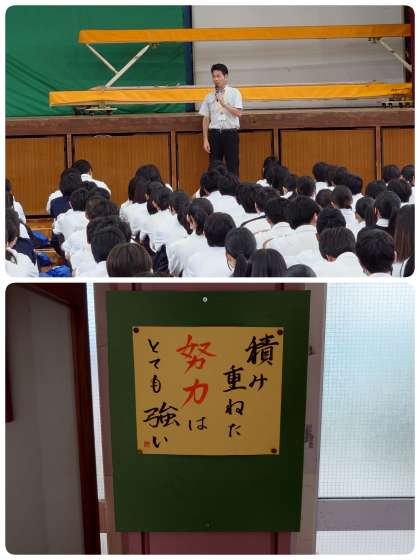 積み
重ねた
努力は
とても強い